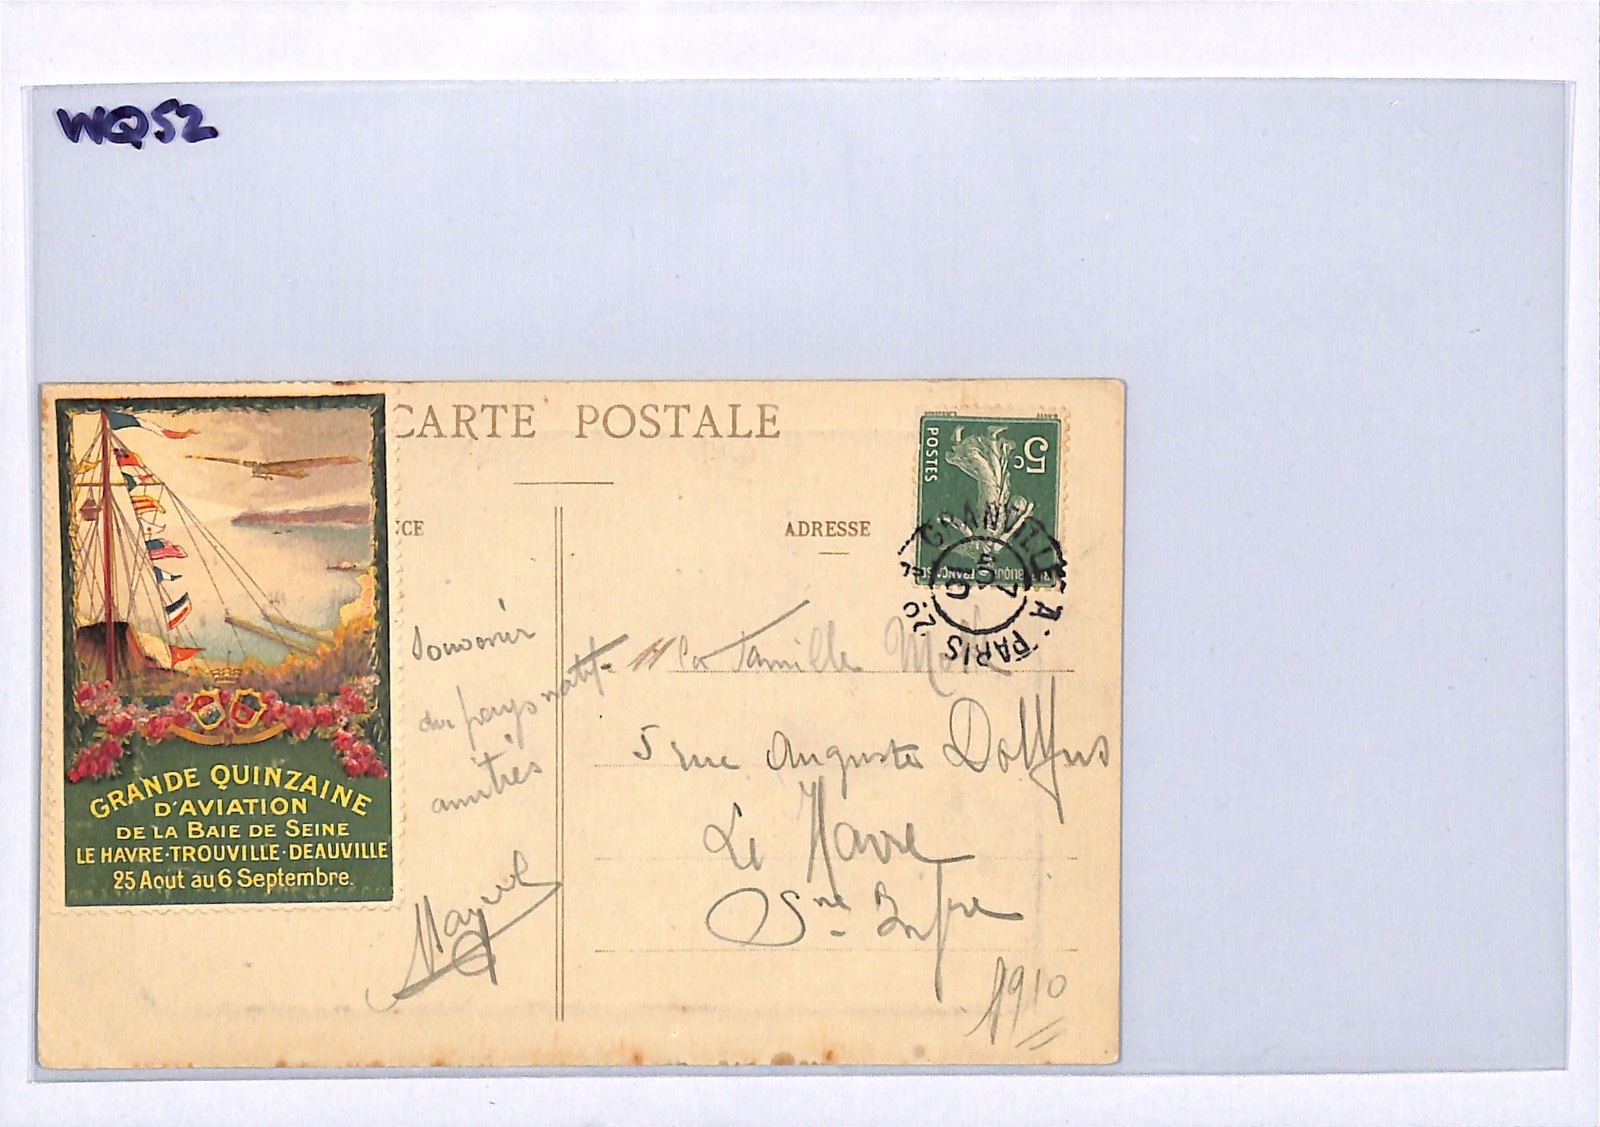 WQ52
CARTE POSTALE
CE
ADRESSE
5c
POSTES
GRANVILLE A PARIS 2o
7
10
Souvenir
du pays natif
amitiés
la famille
5 rue Auguste Dollfus
Le Havre
Sne Infre
1910
GRANDE QUINZAINE
D'AVIATION
DE LA BAIE DE SEINE
LE HAVRE·TROUVILLE·DEAUVILLE
25 Aout au 6 Septembre.